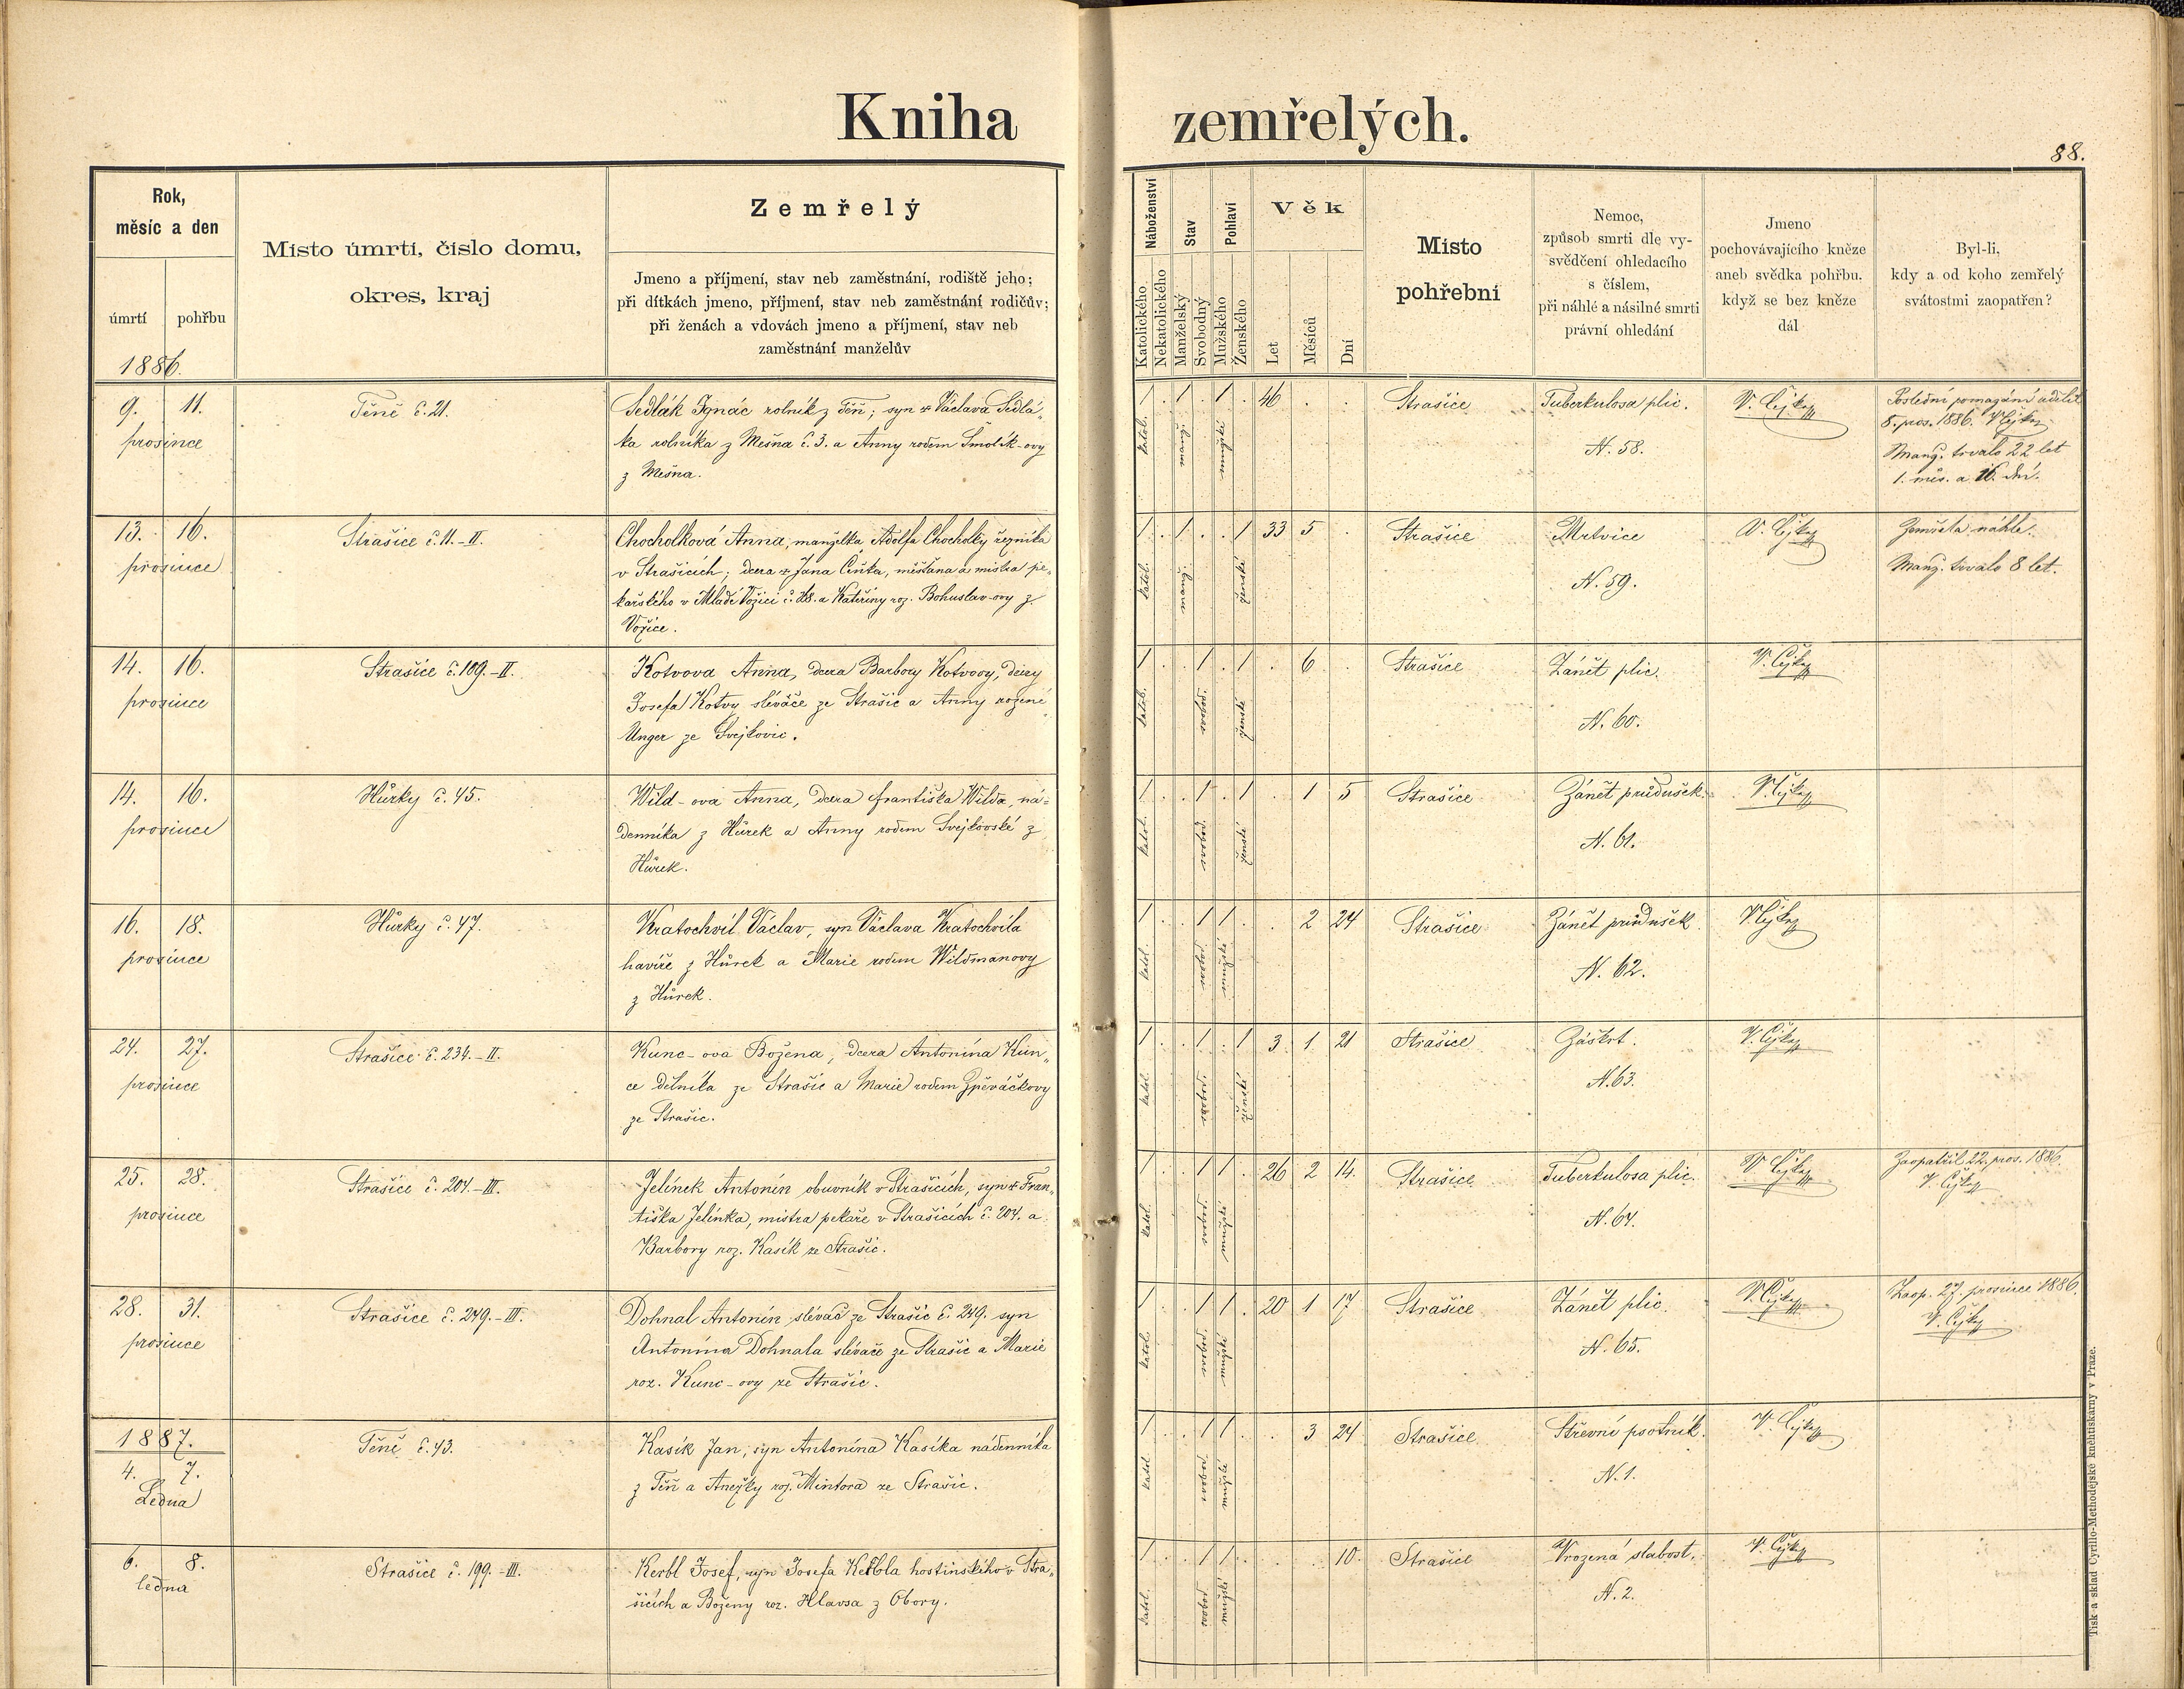 Kniha zemřelých.
88.
Rok,
měsíc a den
úmrtí pohřbu
1886.
Místo úmrtí, číslo domu,
okres, kraj
Zemřelý
Jmeno a příjmení, stav neb zaměstnání, rodiště jeho;
při dítkách jmeno, příjmení, stav neb zaměstnání rodičův;
při ženách a vdovách jmeno a příjmení, stav neb
zaměstnání manželův
Náboženství
Katolického
Nekatolického
Stav
Manželský
Svobodný
Pohlaví
Mužského
Ženského
Věk
Let
Měsíců
Dní
Místo
pohřební
Nemoc,
způsob smrti dle vy-
svědčení ohledacího
s číslem,
při náhlé a násilné smrti
právní ohledání
Jmeno
pochovávajícího kněze
aneb svědka pohřbu,
když se bez kněze
dál
Byl-li,
kdy a od koho zemřelý
svátostmi zaopatřen?
9. 11.
prosince
Těně č. 21.
Sedlák Ignác rolník z Těň; syn + Václava Sedlá-
ka rolníka z Mešna č. 3. a Anny rodem Smolík-ovy
z Mešna.
1 . 1 . 1 . 46 . .
katol.
mužské
Strašice
Tuberkulosa plic.
N. 58.
V. Čejka
Poslední pomazání udělil
8. pros. 1886. V. Čejka
Manž. trvalo 22 let
1. měs. a 16. dní.
13. 16.
prosince
Strašice č. 11.-II.
Chocholková Anna, manželka Adolfa Chocholky řezníka
v Strašicích; dcera + Jana Činka, měšťana a mistra pe-
kařského v Mladé Vožici č. 28. a Kateřiny roz. Bohuslav-ovy z
Vožice.
1 . 1 . . 1 33 5 .
katol.
ženské
Strašice
Mrtvice
N. 59.
V. Čejka
Zemřela náhle.
Manž. trvalo 8 let.
14. 16.
prosince
Strašice č. 109.-II.
Kotvova Anna, dcera Barbory Kotvovy, dcery
Josefa Kotvy slévače ze Strašic a Anny rozené
Unger ze Svejkovic.
1 . . 1 . 1 . 6 .
katol.
svobod.
ženské
Strašice
Zánět plic.
N. 60.
V. Čejka
14. 16.
prosince
Hůrky č. 45.
Wild-ova Anna, dcera Františka Wilda, ná-
denníka z Hůrek a Anny rodem Svejkovské z
Hůrek.
1 . . 1 . 1 . 1 5
katol.
svobod.
ženské
Strašice
Zánět průdušek.
N. 61.
V. Čejka
16. 18.
prosince
Hůrky č. 47.
Kratochvíl Václav, syn Václava Kratochvíla
havíře z Hůrek a Marie rodem Wildmanovy
z Hůrek.
1 . . 1 1 . . 2 24
katol.
svobod.
mužské
Strašice
Zánět průdušek.
N. 62.
V. Čejka
24. 27.
prosince
Strašice č. 234.-II.
Kunc-ova Božena, dcera Antonína Kun-
ce dělníka ze Strašic a Marie rodem Zpěváčkovy
ze Strašic.
1 . . 1 . 1 3 1 21
katol.
svobod.
ženské
Strašice
Záškrt.
N. 63.
V. Čejka
25. 28.
prosince
Strašice č. 204.-III.
Jelínek Antonín obuvník v Strašicích, syn + Fran-
tiška Jelínka, mistra pekaře v Strašicích č. 204. a
Barbory roz. Kasík ze Strašic.
1 . . 1 1 . 26 2 14.
katol.
svobod.
mužské
Strašice
Tuberkulosa plic.
N. 64.
V. Čejka
Zaopatřil 22. pros. 1886.
V. Čejka
28. 31.
prosince
Strašice č. 249.-III.
Dohnal Antonín slévač ze Strašic č. 249. syn
Antonína Dohnala slévače ze Strašic a Marie
roz. Kunc-ovy ze Strašic.
1 . . 1 1 . 20 1 17
katol.
svobod.
mužské
Strašice
Zánět plic.
N. 65.
V. Čejka
Zaop. 27. prosince 1886.
V. Čejka
1887.
4. 7.
Ledna
Těně č. 43.
Kasík Jan, syn Antonína Kasíka nádenníka
z Těň a Anežky roz. Mintora ze Strašic.
1 . . 1 1 . . 3 24
katol.
svobod.
mužské
Strašice
Střevní psotník.
N. 1.
V. Čejka
6. 8.
ledna
Strašice č. 199.-III.
Kerbl Josef, syn Josefa Kerbla hostinského v Stra-
šicích a Boženy roz. Hlavsa z Obory.
1 . . 1 1 . . . 10.
katol.
svobod.
mužské
Strašice
Vrozená slabost.
N. 2.
V. Čejka
Tisk a sklad Cyrillo-Methodějské knihtiskárny v Praze.